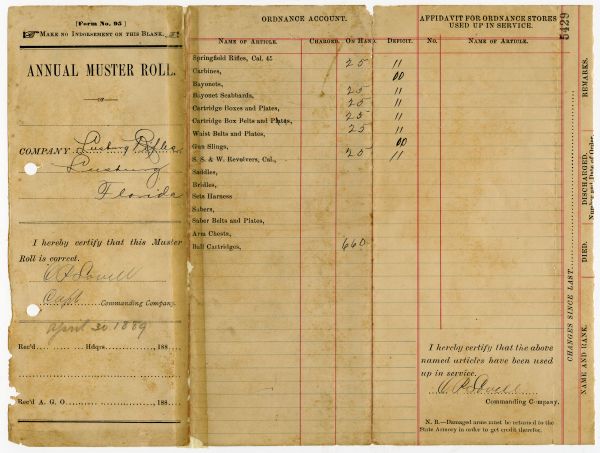 [Form No. 95]
MAKE NO INDORSEMENT ON THIS BLANK.
ANNUAL MUSTER ROLL.
OF
COMPANY Leesburg Rifles
Leesburg
Florida
I hereby certify that this Muster
Roll is correct.
Lovell
Capt Commanding Company.
April 30 1889
Rec'd Hdqrs. , 188
Rec'd A. G. O. , 188
ORDNANCE ACCOUNT.
NAME OF ARTICLE. CHARGED. ON HAND. DEFICIT.
Springfield Rifles, Cal. 45 25 11
Carbines, 00
Bayonets, 25 11
Bayonet Scabbards, 25 11
Cartridge Boxes and Plates, 25 11
Cartridge Box Belts and Plates, 25 11
Waist Belts and Plates, 00
Gun Slings, 25 11
S. S. & W. Revolvers, Cal.,
Saddles,
Bridles,
Sets Harness
Sabers,
Saber Belts and Plates,
Arm Chests,
Ball Cartridges, 660
AFFIDAVIT FOR ORDNANCE STORES
USED UP IN SERVICE.
No. NAME OF ARTICLE.
I hereby certify that the above
named articles have been used
up in service.
Lovell
Commanding Company.
N. B.—Damaged arms must be returned to the
State Armory in order to get credit therefor.
5429
CHANGES SINCE LAST
NAME AND RANK.
DIED.
DISCHARGED.
Number and Date of Order.
REMARKS.